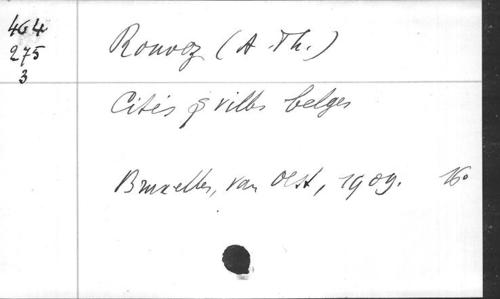 464
275
3
Rouvez (A.Th.)
Cités & villes belges
Bruxelles, van Oest, 1909. 16°